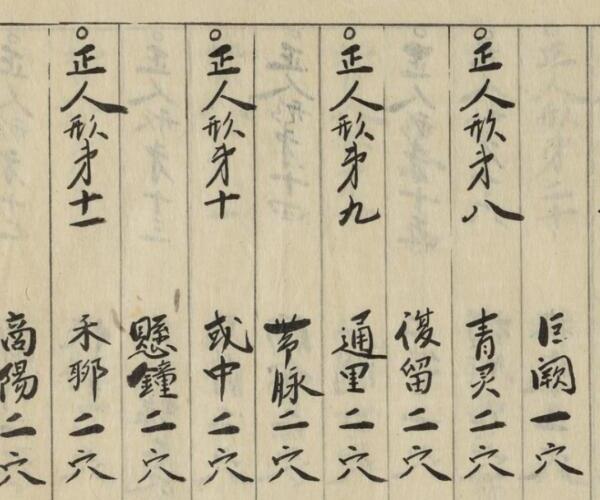 巨闕一穴
○正人形㐧八　青灵二穴
復留二穴
○正人形㐧九　通里二穴
帯脉二穴
○正人形㐧十　或中二穴
懸鐘二穴
○正人形㐧十一　禾聊二穴
商陽二穴